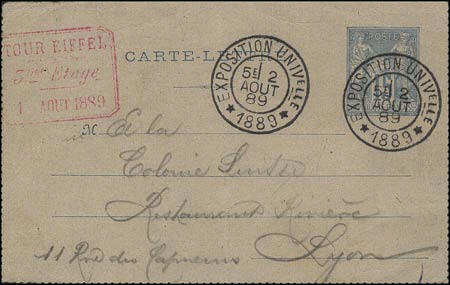 TOUR EIFFEL
3me Etage
1 AOUT 1889
CARTE-LETTRE
EXPOSITION UNIVELLE
5E 2
AOUT
89
★ 1889 ★
EXPOSITION UNIVELLE
5E 2
AOUT
89
★ 1889 ★
15
M A la
Colonie Suisse
Restaurant Rivière
11 Rue des Capucins Lyon